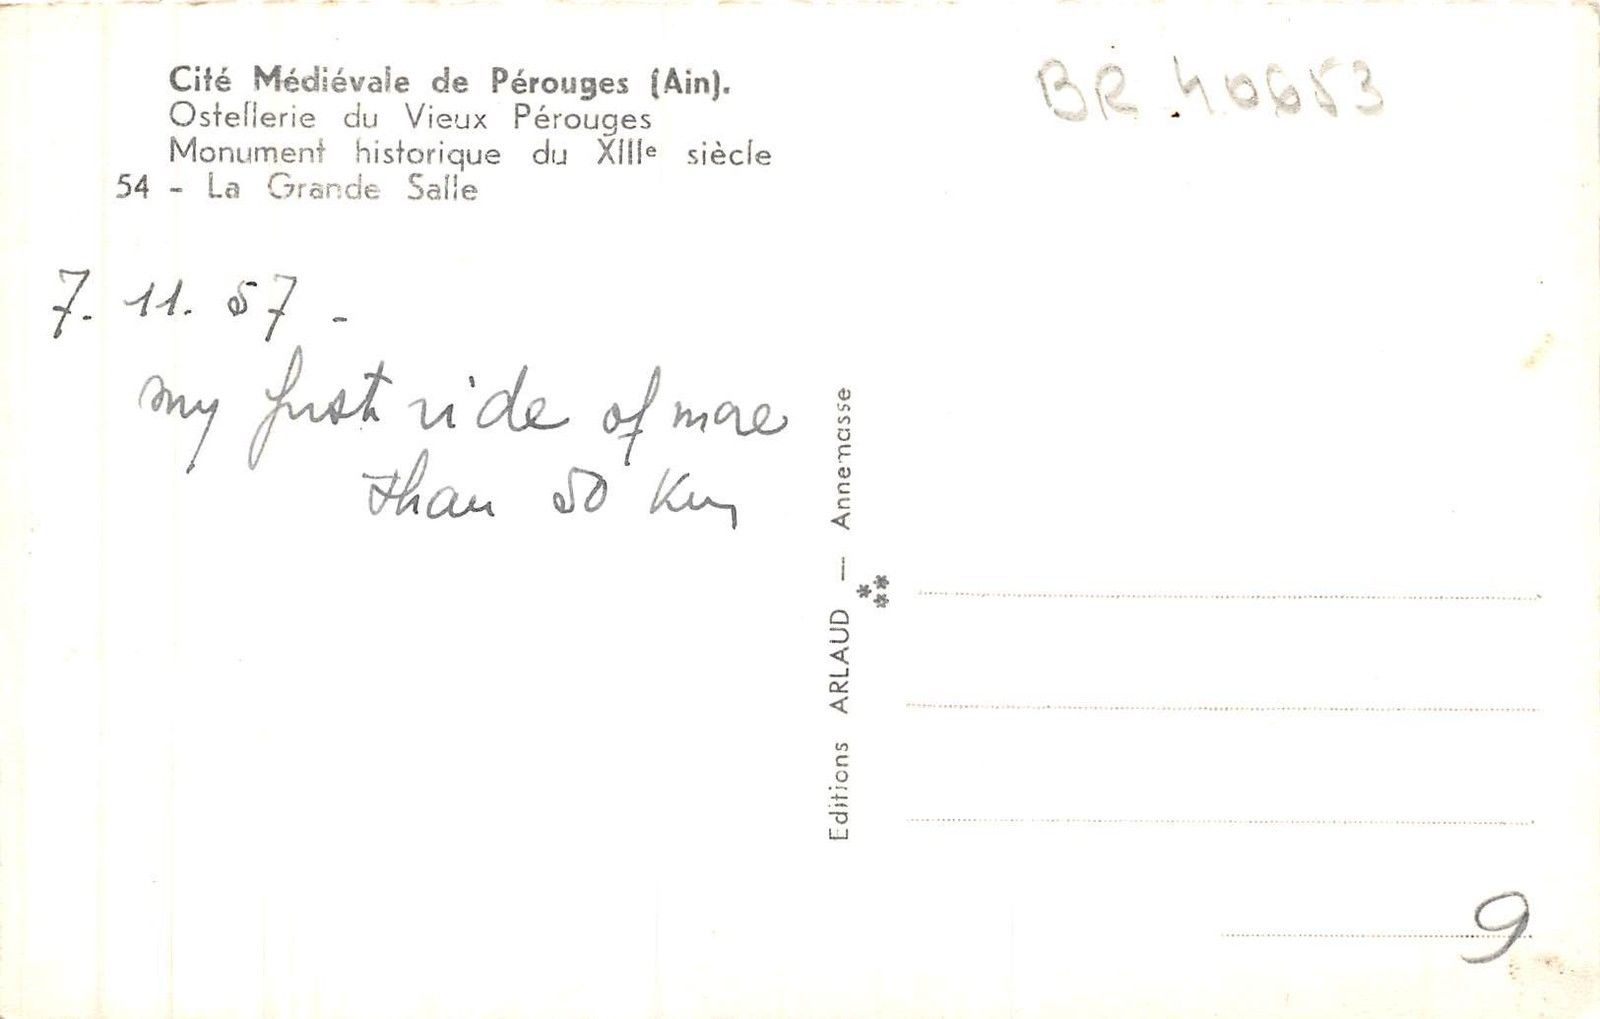 Cité Médiévale de Pérouges (Ain).
Ostellerie du Vieux Pérouges
Monument historique du XIIIe siècle
54 - La Grande Salle
BR 40653
7. 11. 57 -
my first ride of more
than 50 Km
Editions ARLAUD — Annemasse
9